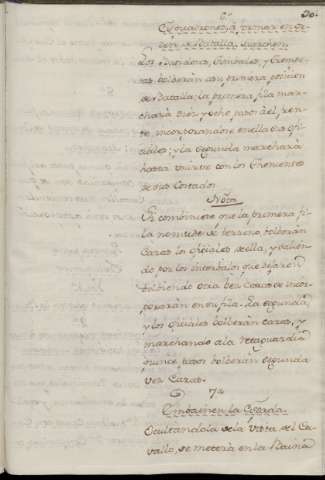 30.
6ª
Esquadrones á primer orden
de Batalla, marchen.
Los Bandera, Timbales, y Trompe-
tas bolberán á su primera posicion
de Batalla; la primera fila mar-
chará diez y ocho pasos de frente
incorporandose en ella los ofi-
ciales; y la segunda marchará
hasta unirse con los Thenientes
de sus Costados.
Nota
Si combiniere que la primera fi-
la no mude de terreno, bolberán
Caras los oficiales de ella, y salien-
do por los intervalos que dejaron
bolbiendo otra bez Caras se incor-
porarán en su fila. La segunda
y los oficiales bolberán caras, y
marchando á la retaguardia
quince pasos bolberán segunda
vez Caras.
7ª
Embainen la Espada.
Ocultandola de la vista del Ca-
vallo, se meterá en la Baina